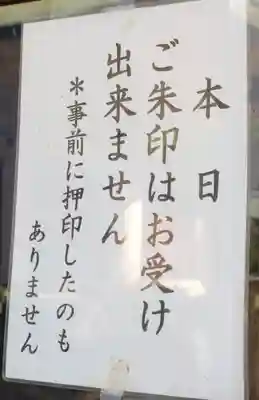 本日
ご朱印はお受け
出来ません
＊事前に押印したのも
ありません